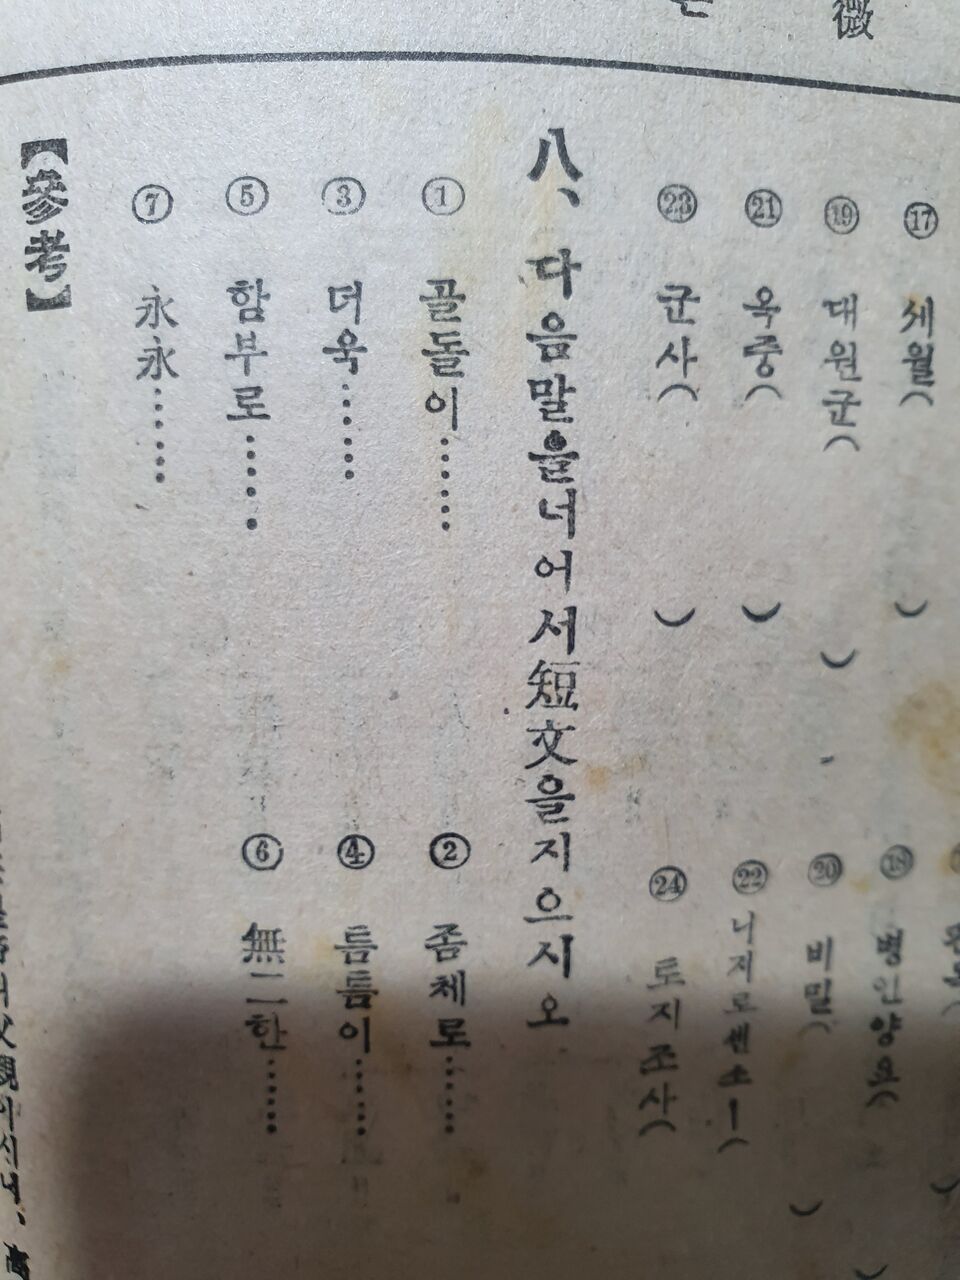 薇
⑰ 세월( )
⑱ 병인양요(
⑲ 대원군( )
⑳ 비밀( )
㉑ 옥중( )
㉒ 니지로센소ー(
㉓ 군사( )
㉔ 토지조사(
八、다음말을너어서短文을지으시오
① 골돌이……
② 좀체로……
③ 더욱……
④ 틈틈이……
⑤ 함부로……
⑥ 無二한……
⑦ 永永……
【參考】